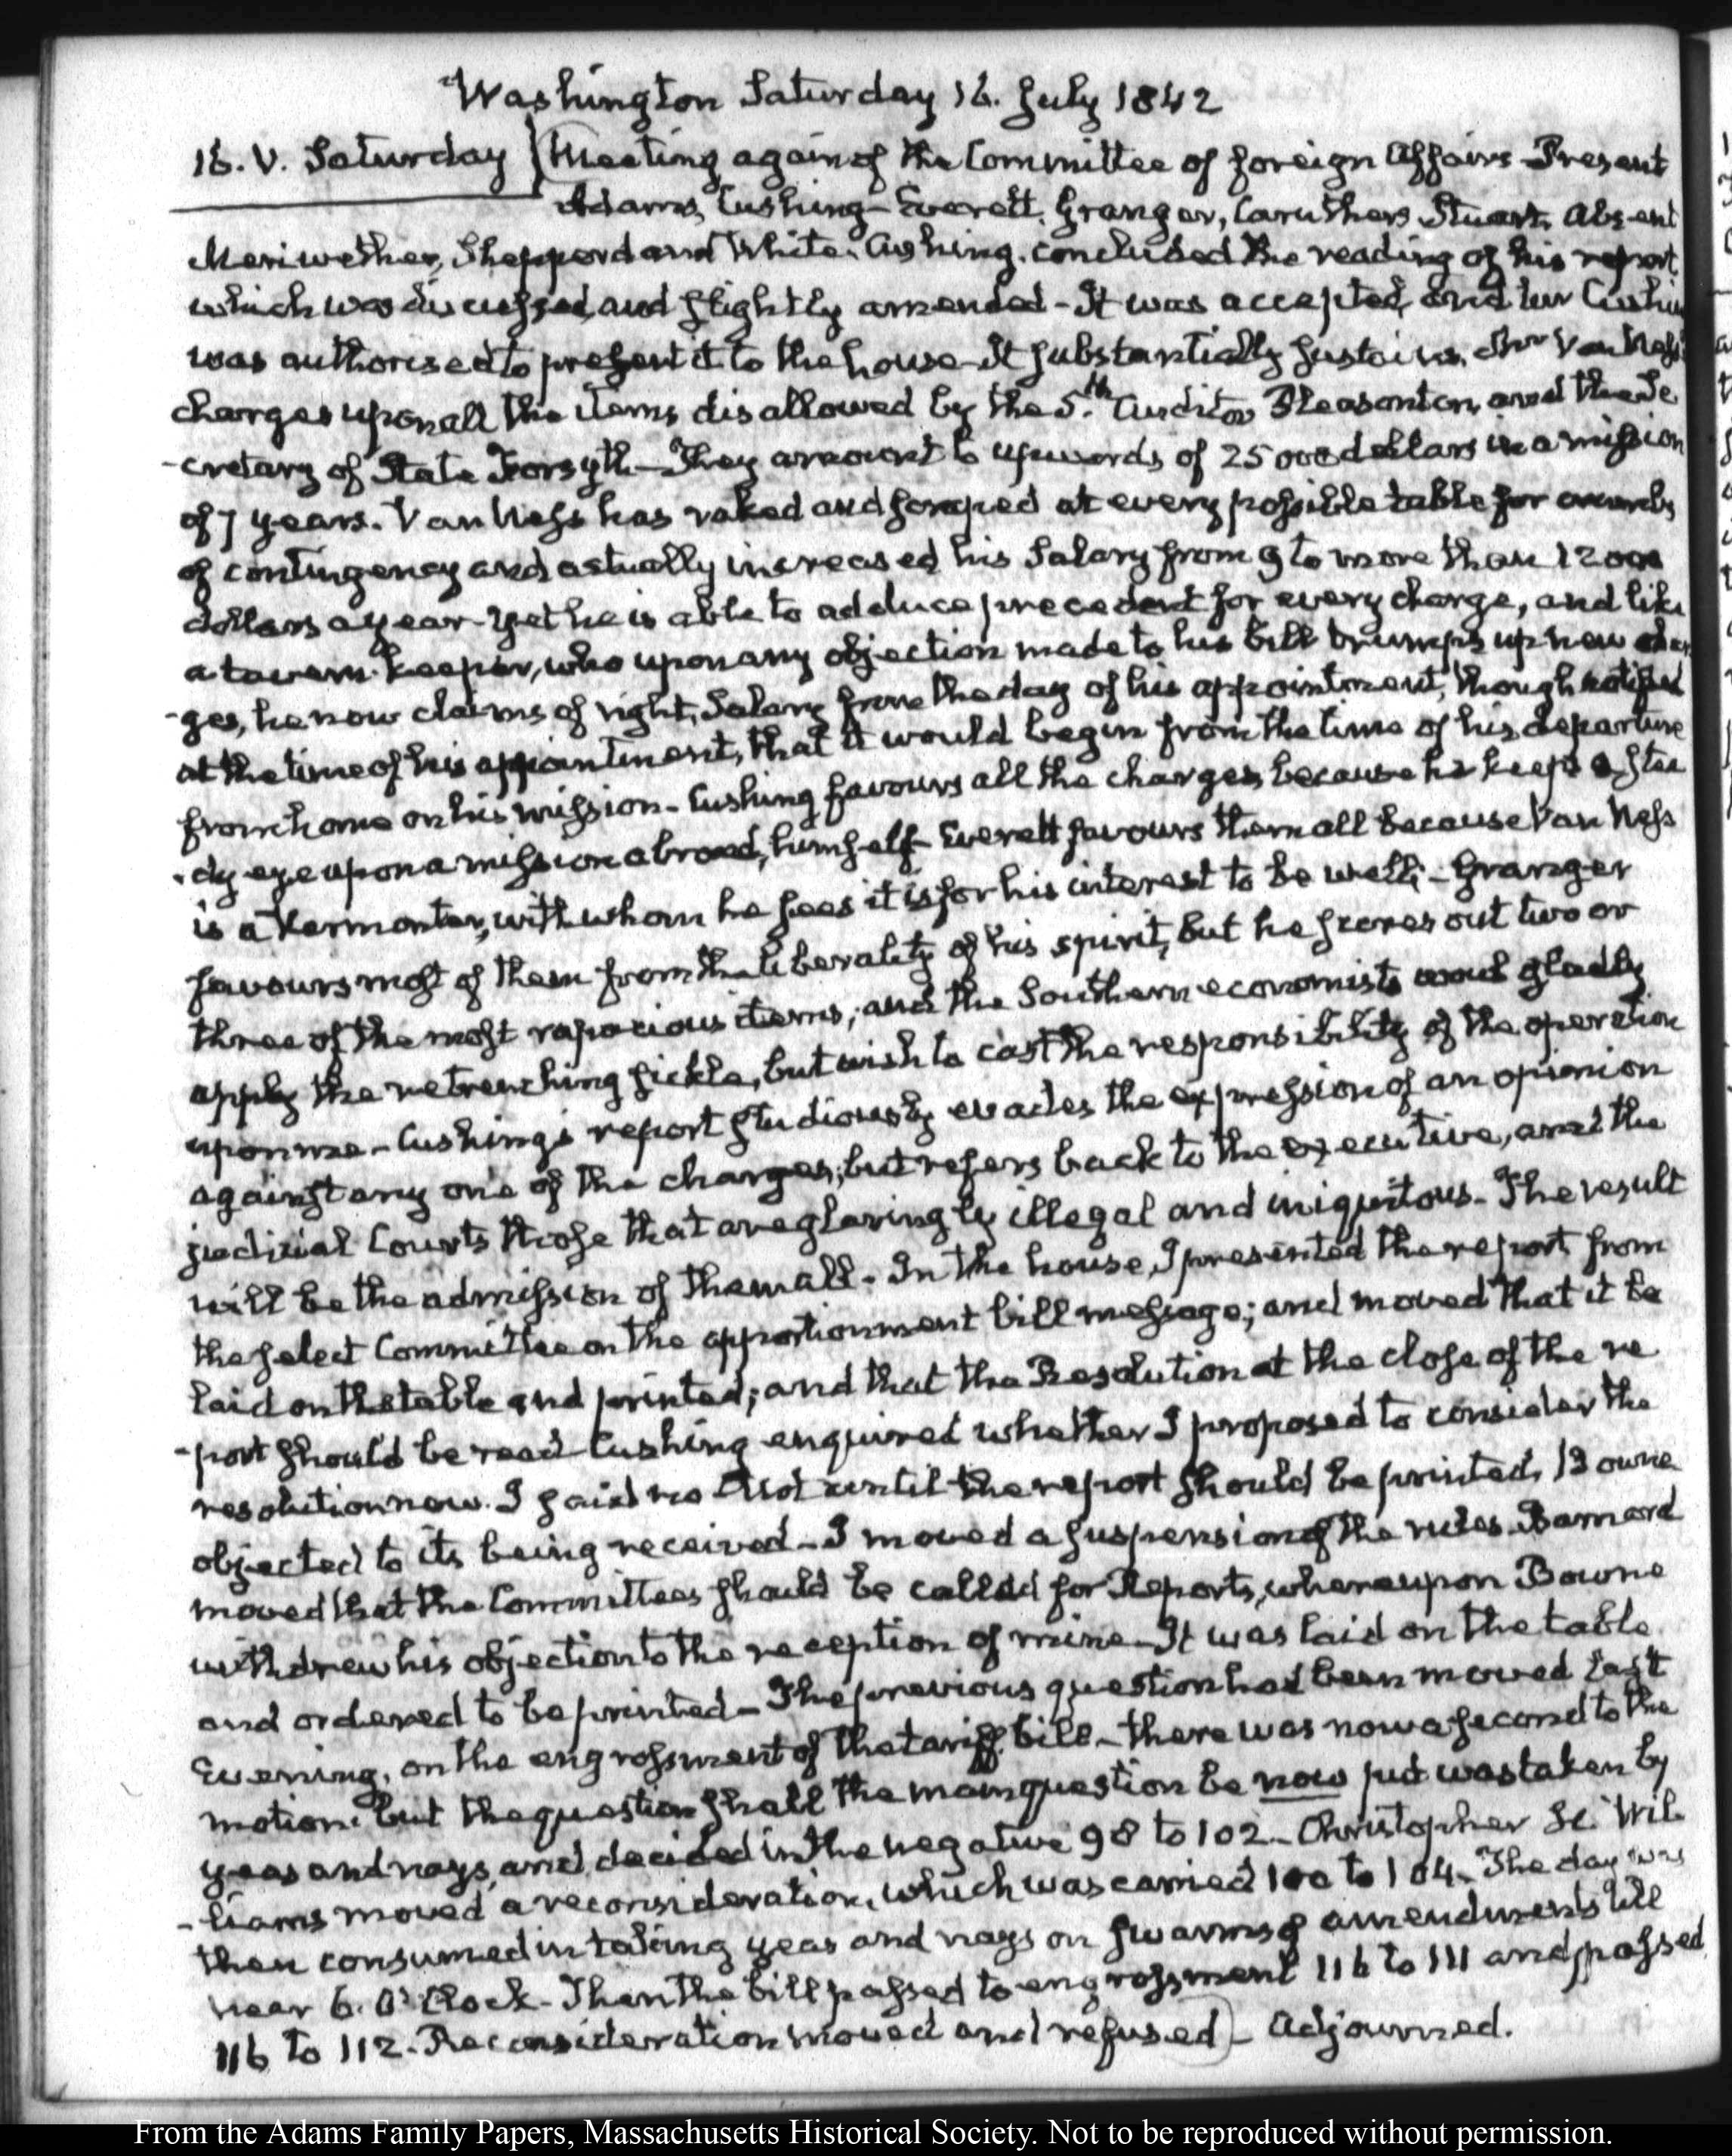 Washington Saturday 16. July 1842
16. V. Saturday Meeting again of the Committee of foreign Affairs Present
Adams, Cushing - Everett, Granger, Caruthers Stuart. Absent
Meriwether, Shepperd and White. Cushing concluded the reading of his report
which was discussed, and slightly amended - It was accepted, and
was authorised to present it to the house - It substantially sustains Van Ness's
charges upon all the items disallowed by the 5.th Auditor Pleasonton, and the Se
-cretary of State Forsyth - They amount to upwards of 25000 dollars in a mission
of 7 years. Van Ness has raked and scraped at every possible table for
of contingency and actually increased his Salary from 9 to more than 12000
dollars a year - Yet he is able to adduce precedent for every charge, and like
a tavern-keeper, who upon any objection made to his bill trumps up new char
-ges, he now claims of right, Salary from the day of his appointment, though notified
at the time of his appointment, that it would begin from the time of his departure
from home on his mission - Cushing favours all the charges, because he keeps a stea
-dy eye upon a mission abroad, himself - Everett favours them all because Van Ness
is a Vermonter, with whom he sees it is for his interest to be well; - Granger
favours most of them from the liberality of his spirit, but he scores out two or
three of the most rapacious items; and the Southern economists would gladly
apply the retrenching sickle, but wish to cast the responsibility of the operation
upon me - Cushing's report studiously evades the expression of an opinion
against any one of the charges; but refers back to the executive, and the
judicial Courts those that are glaringly illegal and iniquitous - The result
will be the admission of them all. - In the house, I presented the report from
the select Committee on the apportionment bill message; and moved that it be
laid on the table and printed; and that the Resolution at the close of the re
-port should be read - Cushing enquired whether I proposed to consider the
resolution now. I said no - Not until the report should be printed. Bowne
objected to its being received - I moved a suspension of the rules - Barnard
moved that the Committees should be called for Reports, whereupon Bowne
withdrew his objection to the reception of mine - It was laid on the table
and ordered to be printed - The previous question had been moved last
Evening, on the engrossment of the tariff bill - there was now a second to the
motion: but the question shall the main question be now put was taken by
yeas and nays, and decided in the negative 98 to 102 - Christopher H. Wil
-liams moved a reconsideration, which was carried 100 to 104. The day was
then consumed in taking yeas and nays on swarms of amendments till
near 6. O'Clock - Then the bill passed to engrossment 116 to 111 and passed
116 to 112 - Reconsideration moved and refused - Adjourned.
From the Adams Family Papers, Massachusetts Historical Society. Not to be reproduced without permission.